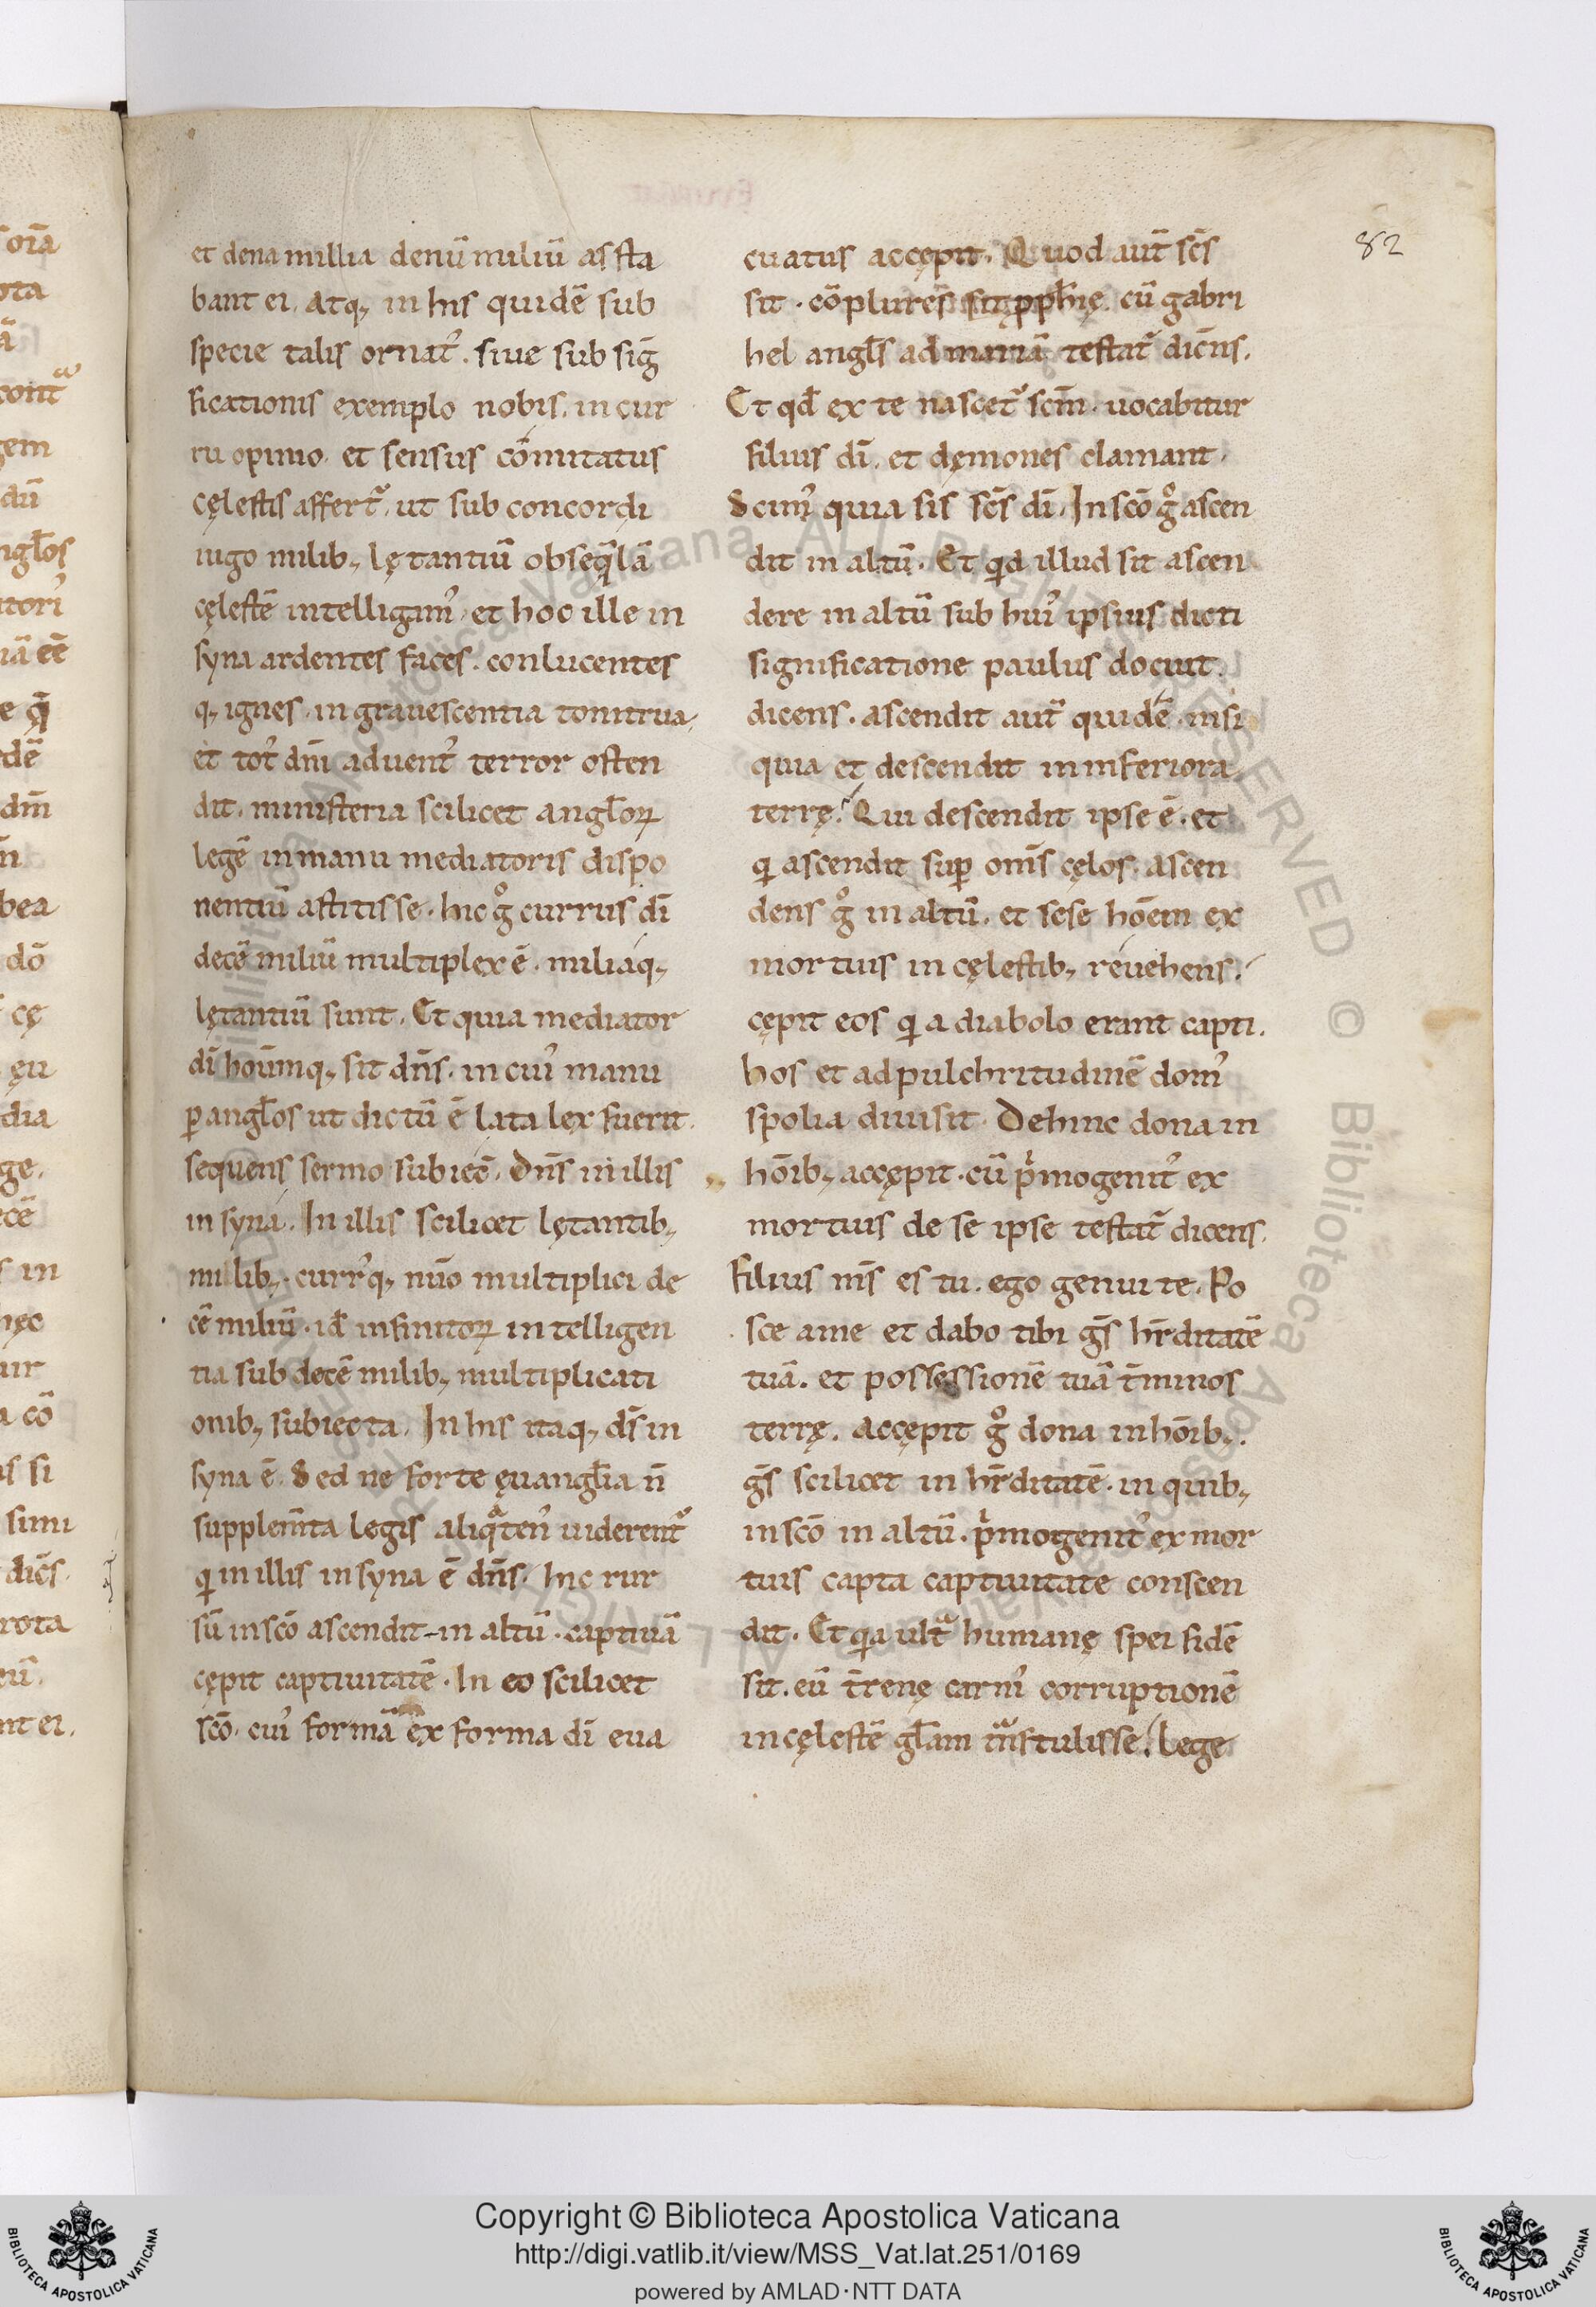 82
et dena millia denũ miliũ assta
bant ei. Atq; in his quidẽ sub
specie talis ornat᾽. siue sub sig̃
ficationis exemplo nobis. in cur
ru opimo. et sensus cõmitatus
cęlestis affert᷑. ut sub concordi
iugo milib; lętantiũ obseq̃lã
cęlestẽ intelligam᾽. et hoc ille in
syna ardentes faces. conlucentes
q; ignes. in grauescentia tonitrua.
et tot᾽ dñi aduent᾽ terror osten
dit. ministeria scilicet angl̃oꝝ
legẽ in manu mediatoris dispo
nentiũ astitisse. hic g̊ currus dĩ
decẽ miliũ multiplex ẽ. miliaq;
lętantiũ sunt. Et quia mediator
dĩ hoũmq; sit dñs. in cui᾽ manu
ꝑ angl̃os ut dictũ ẽ lata lex fuerit.
sequens sermo subiec̃. Dñs in illis
in syna. In illis scilicet lętantib;
milib;. curr᾽q; nũo multiplici de
cẽ miliũ. id̃ infinitoꝝ intelligen
tia sub decẽ milib; multiplicati
onib; subiecta. In his itaq; ds̃ in
syna ẽ. Sed ne forte ęuangl̃ia ñ
supplem̃ta legis aliqᷓten᾽ uiderent᷑
qͥ in illis in syna ẽ dñs. hic rur
sũ in scõ ascendit in altũ. captiuã
cępit captiuitatẽ. In eo scilicet
scõ. cui᾽ formã ex forma dĩ eua
cuatus accępit. Quod aut̃ scs̃
sit. cõplures sit ꝓph̃ię. cũ gabri
hel angl̃s ad mariã testat᷑ dic̃ns.
Et qd̃ ex te nascet᷑ scm̃. uocabitur
filius dĩ. et dęmones clamant.
Scim᾽ quia sis scs̃ dĩ. In scõ g̊ ascen
dit in altũ. Et qͥd illud sit ascen
dere in altũ sub hui᾽ ipsius dicti
significatione paulus docuit.
dicens. ascendit aut̃ quidẽ. nisi
quia et descendit in inferiora
terrę. Qui descendit ipse ẽ. et
qͥ ascendit suꝑ oms̃ cęlos. ascen
dens g̊ in altũ. et sese hoẽm ex
mortuis in cęlestib; reuehens.
cępit eos qͥ a diabolo erant capti.
hos et ad pulchritudinẽ dom᾽
spolia diuisit. Dehinc dona in
hoĩb; accępit. cũ pͥmogenit᾽ ex
mortuis de se ipse testat᷑ dicens.
Filius ms̃ es tu. ego genui te. Po
sce a me et dabo tibi gs̃ hr̃ditatẽ
tuã. et possessionẽ tuã t̃minos
terrę. Accępit g̊ dona in hoĩb;.
gs̃ scilicet in hr̃ditatẽ. in quib;
in scõ in altũ. pͥmogenit᾽ ex mor
tuis capta captiuitate conscen
dit. Et qͥa ultᷓ humanę spei fidẽ
sit. eũ t̃renę carnis᾽ corruptionẽ
in cęlestẽ gl̃am tᷓnstulisse. Lege